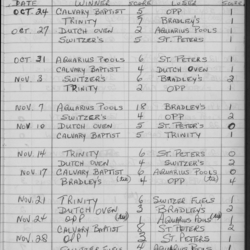 DATE WINNER SCORE LOSER SCORE
OCT 24 CALVARY BAPTIST 5 OPP 1
TRINITY 7 BRADLEY'S 1
OCT 27 DUTCH OVEN 2 AQUARIUS POOLS 1
SWITZER'S 5 ST. PETERS 1
OCT 31 AQUARIUS POOLS 6 ST. PETERS 1
CALVARY BAPTIST 4 DUTCH OVEN 1
NOV. 3 SWITZER'S 6 BRADLEY'S 2
TRINITY 2 OPP 1
NOV. 7 AQUARIUS POOLS 18 BRADLEY'S 1
SWITZER'S 4 OPP 2
NOV 10 DUTCH OVEN 5 ST. PETER'S 0
CALVARY BAPTIST 5 TRINITY 1
NOV. 14 TRINITY 6 ST. PETER'S 0
DUTCH OVEN 4 SWITZER'S 2
NOV. 17 CALVARY BAPTIST 6 AQUARIUS POOLS
BRADLEY'S (tie) 4 OPP (tie)
NOV. 21 TRINITY 6 SWITZER FUELS 1
DUTCH OVEN 3 BRADLEY'S 2
NOV 24 OPP (tie) 1 AQUARIUS (tie) 1
CALVARY BAPTIST 8 ST. PETERS 2
NOV. 28 OPP 3 ST. PETERS